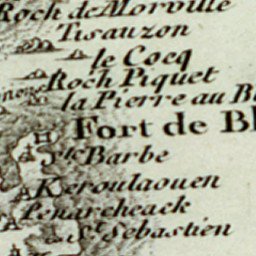 Roch de Morville
Tisauzon
le Cocq
Roch Piquet
la Pierre au
Fort de
Ste Barbe
Keroulaouen
Penarcheack
St Sebastien